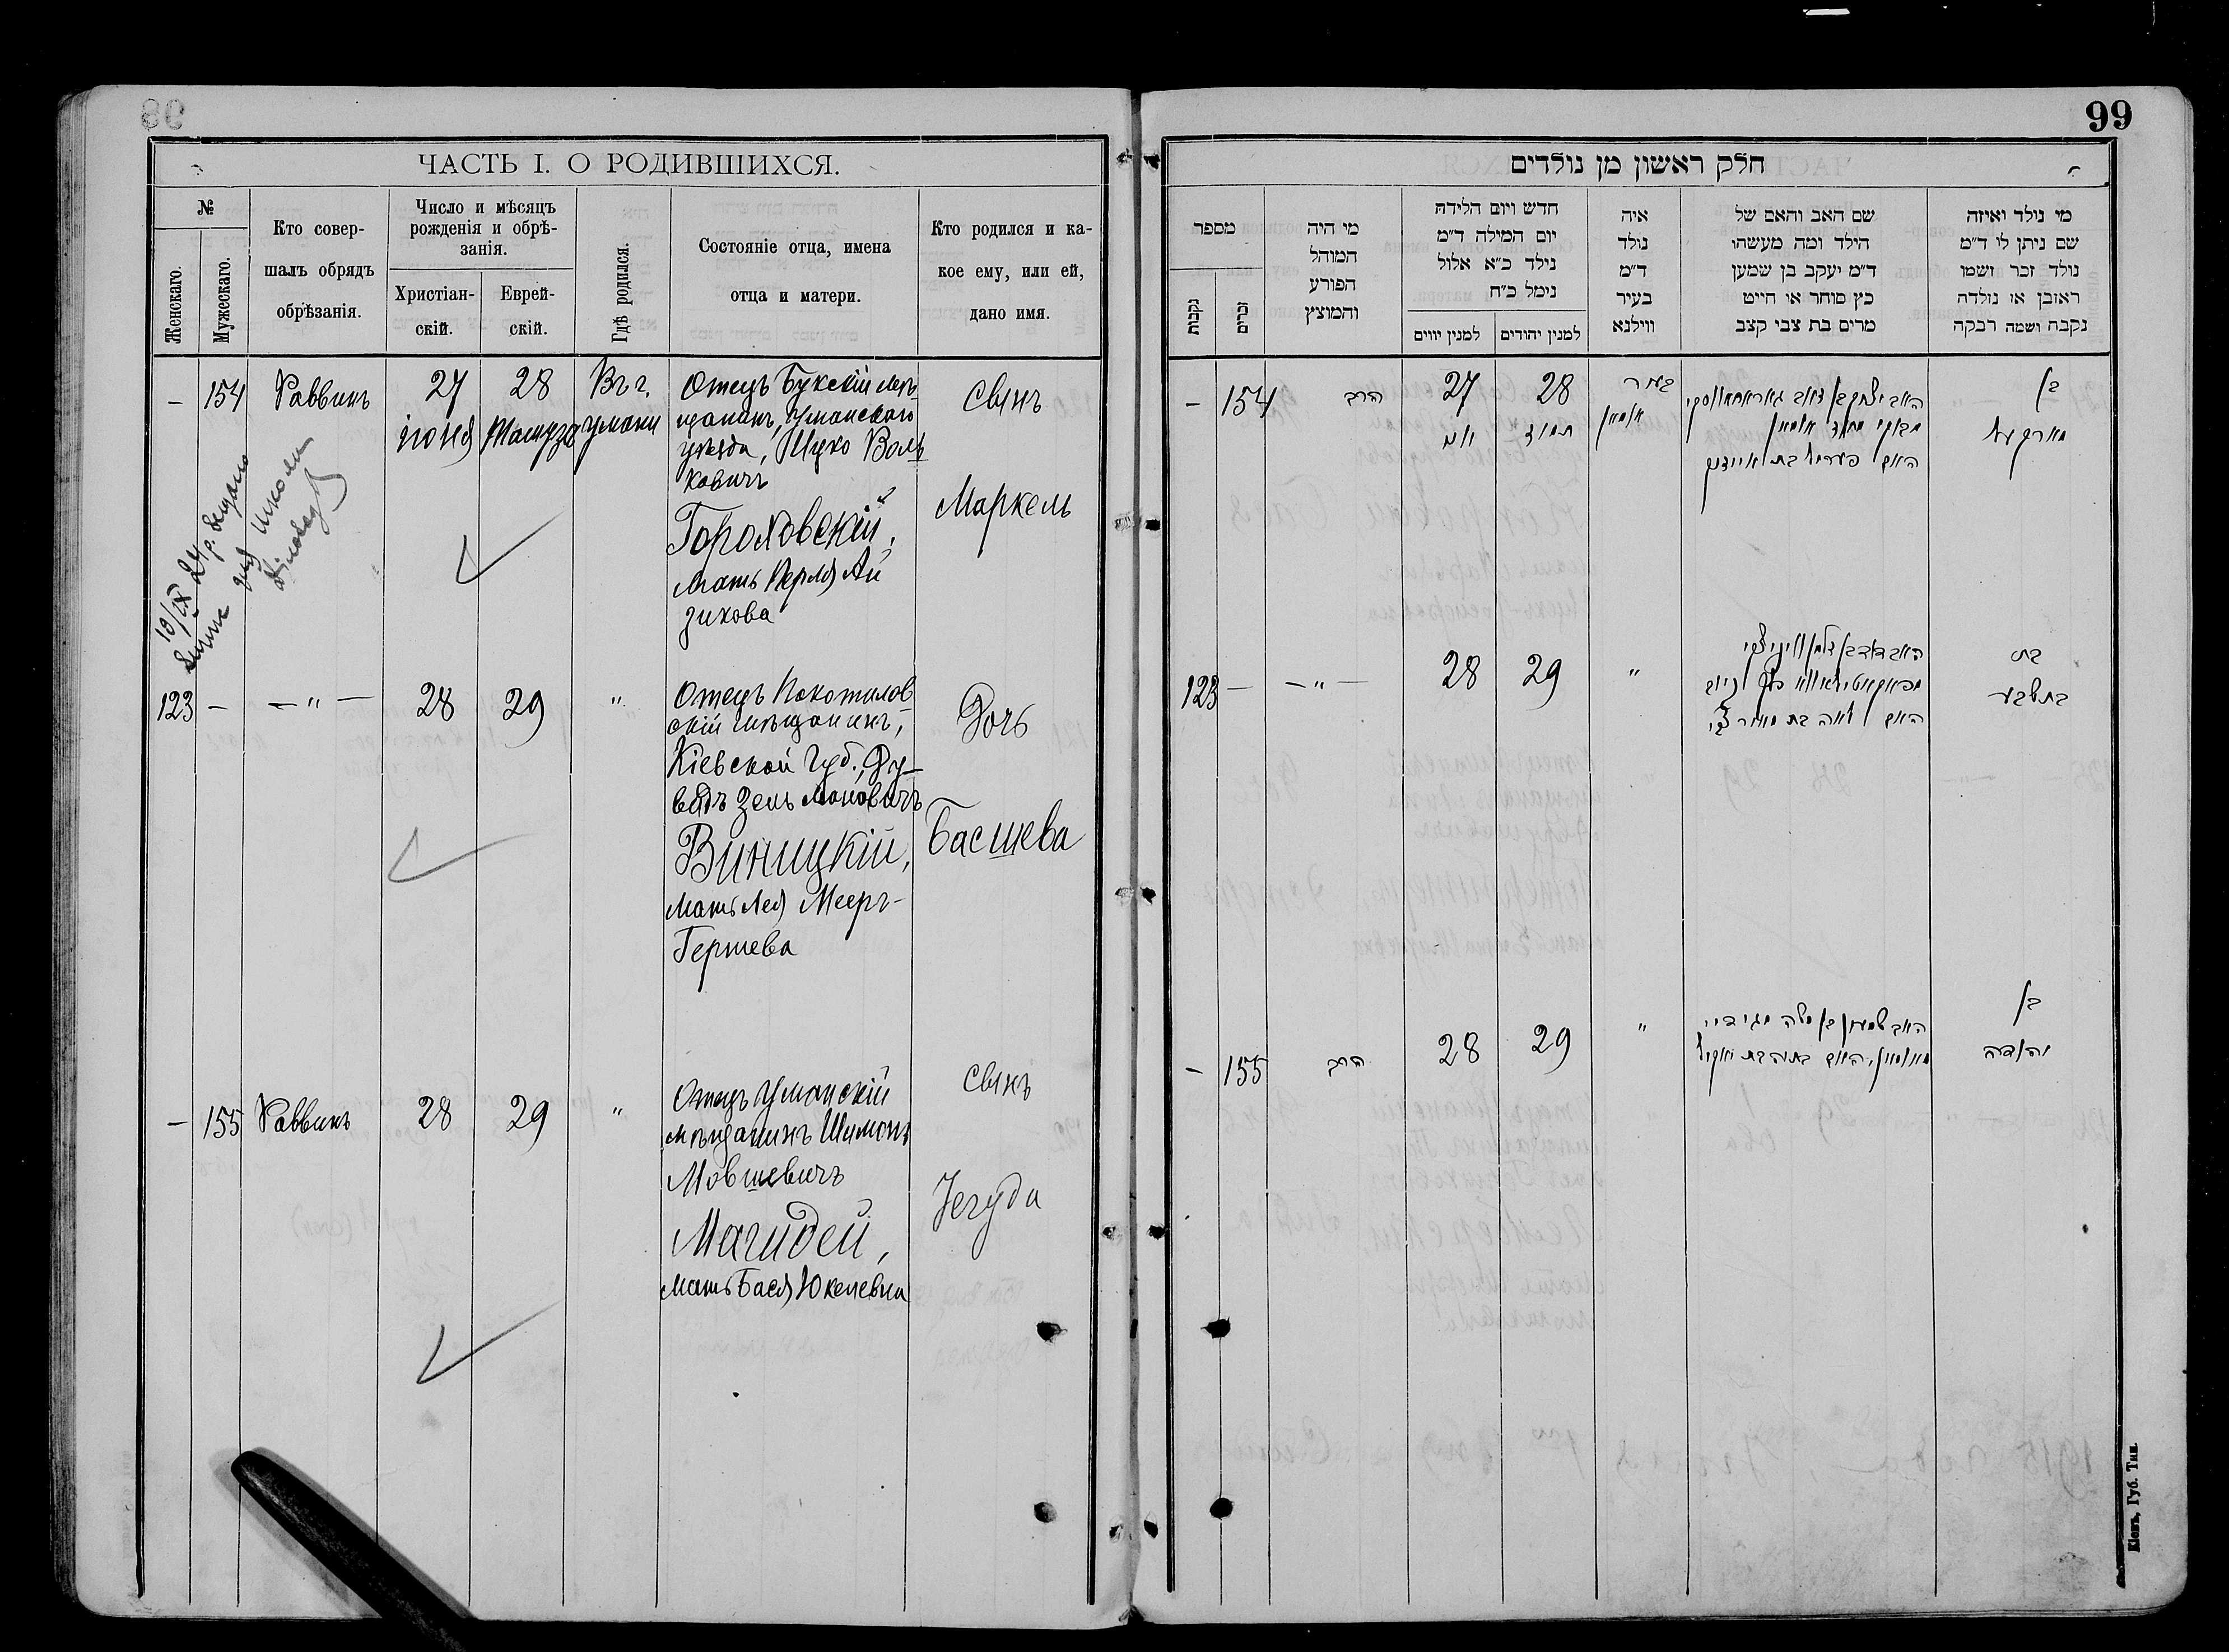 99
ЧАСТЬ I. О РОДИВШИХСЯ.
№
Женскаго.
Мужескаго.
Кто совер-
шалъ обрядъ
обрѣзанія.
Число и мѣсяцъ
рожденія и обрѣ-
занія.
Христіан-
скій.
Еврей-
скій.
Гдѣ родился.
Состояніе отца, имена
отца и матери.
Кто родился и ка-
кое ему, или ей,
дано имя.
– 154 Раввинъ
27
іюня
28
Тамуза
Въ г.
Умани
Отецъ Букскій мѣ-
щанинъ, Уманскаго
уѣзда, Ицко Воль
ковичъ
Гороховскій,
мать Перля Ай
зикова
Сынъ
Маркель
10/IX 24 р.
123 – – " – 28 29 "
Отецъ Покотилов
скій мѣщанинъ,
Кіевской Губ., Ду-
видъ Зельмановичъ
Виницкій,
мать Лея Меерг-
Гершева
Дочь
Басшева
– 155 Раввинъ 28 29 "
Отецъ Уманскій
мѣщанинъ Шимонъ
Мовшевичъ
Магидей,
мать Бася Юкелевна
Сынъ
Іегуда
חלק ראשון מן נולדים
מספר
נקבות
זכרים
מי היה
המוהל
הפורע
והמוצץ
חדש ויום הלידה
יום המילה ד״מ
נילד כ״א אלול
נימל כ״ח
למנין יווים
למנין יהודים
איה
נולד
ד״מ
בעיר
ווילנא
שם האב והאם של
הילד ומה מעשהו
ד״מ יעקב בן שמען
כץ סוחר או חייט
מרים בת צבי קצב
מי נולד ואיזה
שם ניתן לי ד״מ
נולד זכר ושמו
ראובן או נולדה
נקבה ושמה רבקה
– 154 הרב
27
יוני
28
תמוז
בעיר
אומאן
בן
מארקעל
123 – – " – 28 29 "
בת
בתשבע
– 155 הרב 28 29 "
האב שמעון בן משה מגידיי
מאומאן, האם בתיה בת יאקיל
בן
יהודה
Кіевъ, Губ. Тип.